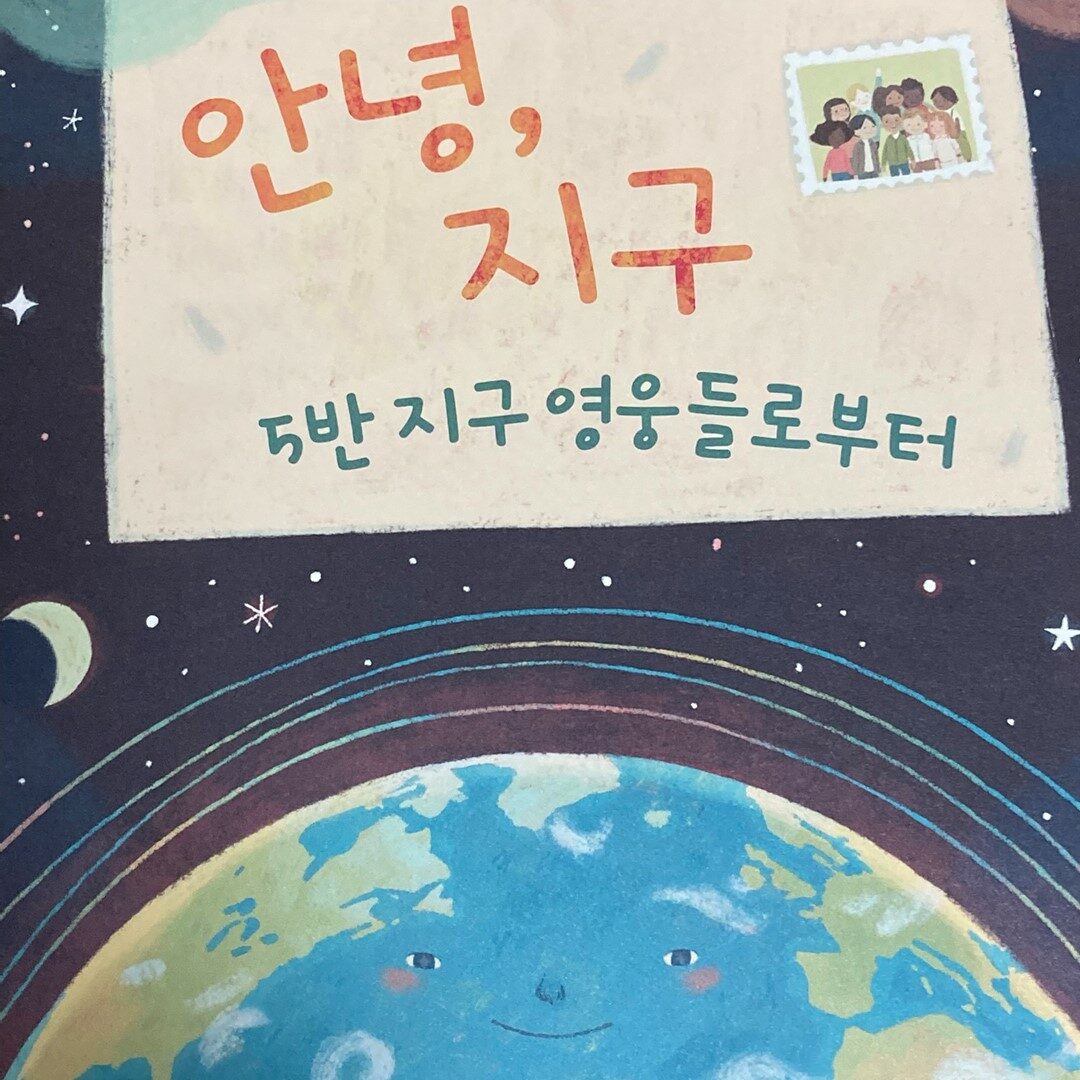 안녕,
지구
5반 지구 영웅들로부터